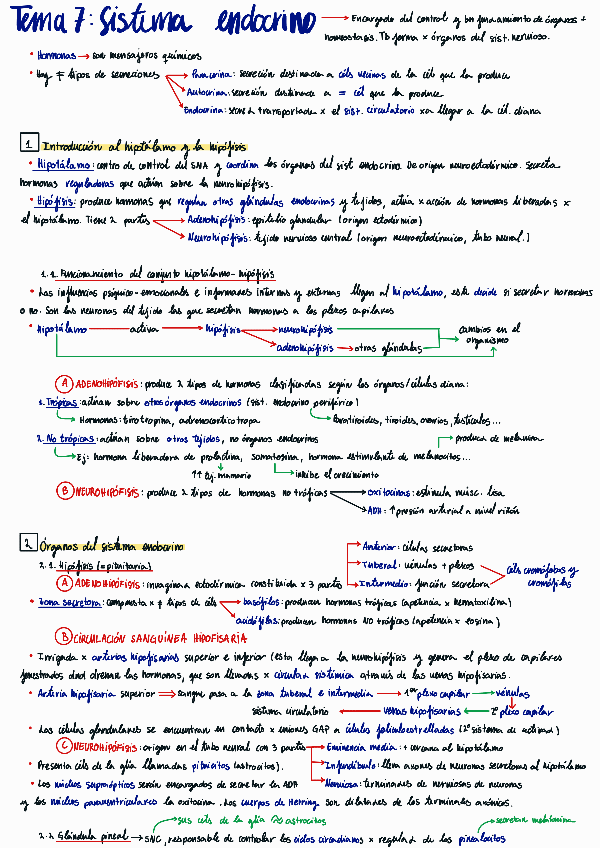 Tema 7: Sistema endocrino → Encargado del control y bn funcionamiento de órganos +
homeostasis. Tb forma x órganos del sist. nervioso.
• Hormonas → son mensajeros químicos
• Hay ≠ tipos de secreciones → Paracrina: secreción destinada a céls vecinas de la cél que la produce
→ Autocrina: secreción destinada a = cél que la produce
→ Endocrina: secrec transportada x el sist. circulatorio xa llegar a la cél. diana
1. Introducción al hipotálamo y la hipófisis
• Hipotálamo: centro de control del SNA y coordina los órganos del sist endocrino. De origen neuroectodérmico. Secreta
hormonas reguladoras que actúan sobre la neurohipófisis.
• Hipófisis: produce hormonas que regulan otras glándulas endocrinas y tejidos, actúa x acción de hormonas liberadas x
el hipotálamo. Tiene 2 partes → Adenohipófisis: epitelio glandular (origen ectodérmico)
→ Neurohipófisis: tejido nervioso central (origen neuroectodérmico, tubo neural)
1.1. Funcionamiento del conjunto hipotálamo-hipófisis
• Las influencias psíquico-emocionales e informaciones internas y externas llegan al hipotálamo, este decide si secretar hormonas
o no. Son las neuronas del tejido las que secretan hormonas a los plexos capilares
• Hipotálamo → activa → hipófisis → neurohipófisis → cambios en el
organismo
→ adenohipófisis → otras glándulas
A ADENOHIPÓFISIS: produce 2 tipos de hormonas clasificadas según los órganos/células diana:
1. Trópicas: actúan sobre otros órganos endocrinos (sist. endocrino periférico)
→ Hormonas: tirotropina, adrenocorticotropa → Paratiroides, tiroides, ovarios, testículos...
2. No trópicas: actúan sobre otros tejidos, no órganos endocrinos → produce de melanina
→ Ej: hormona liberadora de prolactina, somatosina, hormona estimulante de melanocitos...
↑↑ Ej. mamario → inhibe el crecimiento
B NEUROHIPÓFISIS: produce 2 tipos de hormonas no tróficas → Oxitocinas: estimula músc. lisa
→ ADH: ↑ presión arterial a nivel riñón
2. Órganos del sistema endocrino
2.1. Hipófisis (=pituitaria) → Anterior: células secretoras
→ Tuberal: vénulas + plexos
A ADENOHIPÓFISIS: invaginan ectodérmica constituida x 3 partes → Intermedio: función secretora → Céls cromófobas y
cromófilas
• Zona secretora: compuesta x ≠ tipos de céls → basófilos: producen hormonas tróficas (apetencia x hematoxilina)
→ acidófilas: producen hormonas NO tróficas (apetencia x eosina)
B CIRCULACIÓN SANGUÍNEA HIPOFISARIA
• Irrigada x arterias hipofisarias superior e inferior (esta llega a la neurohipófisis y genera el plexo de capilares
fenestrados dnd drenan las hormonas, que son llevadas x circulac sistémica através de las venas hipofisarias.
• Arteria hipofisaria superior ⇒ sangre pasa a la zona tuberal e intermedia → 1er plexo capilar → vénulas
sistema circulatorio ← venas hipofisarias ← 2º plexo capilar
• Las células glandulares se encuentran en contacto x uniones GAP a células foliculoestrelladas (2º sistema de activad)
C NEUROHIPÓFISIS: origen en el tubo neural con 3 partes → Eminencia media: + cercana al hipotálamo
• Presenta céls de la glía llamadas pituicitos (astrocitos). → Infundíbulo: llevan axones de neuronas secretoras al hipotálamo
• Los núcleos supraópticos serán encargados de secretar la ADH → Nerviosa: terminaciones de nerviosas de neuronas
y los núcleos paraventriculares la oxitocina. Los cuerpos de Herring son dilataciones de los terminales axónicos.
→ sus céls de la glía son astrocitos → secretan melatonina
2.2 Glándula pineal → SNC, responsable de controlar los ciclos circadianos x regulac de los pinealocitos